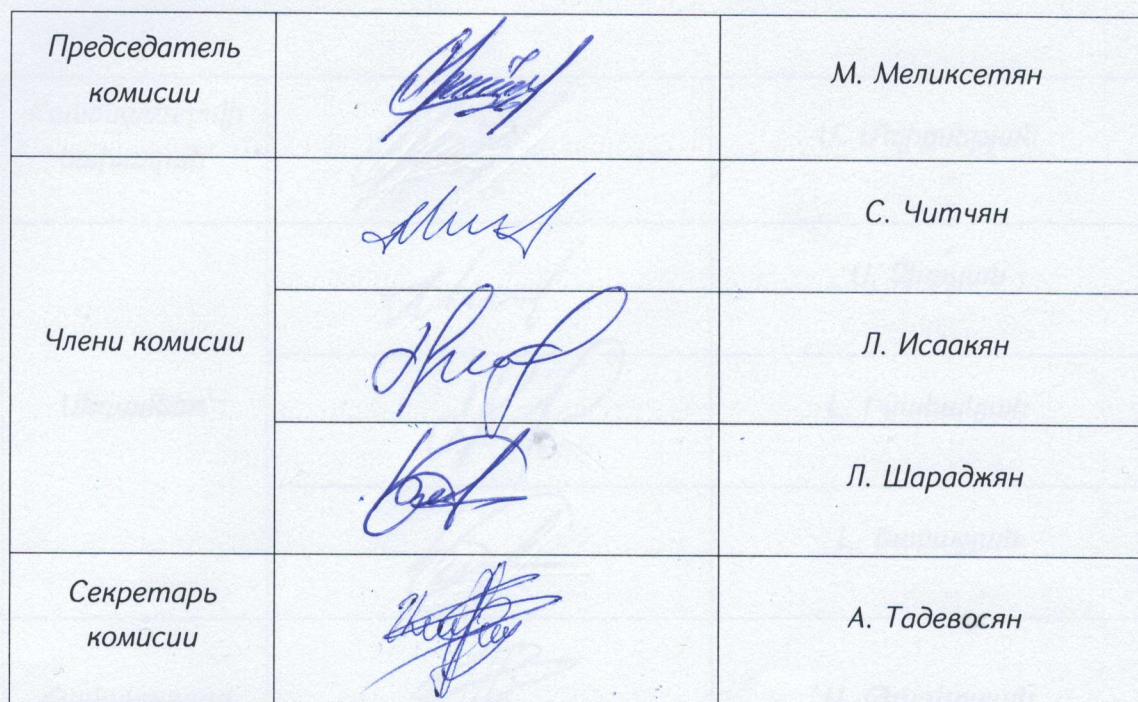 Председатель
комисии
М. Меликсетян
С. Читчян
Члени комисии
Л. Исаакян
Л. Шараджян
Секретарь
комисии
А. Тадевосян